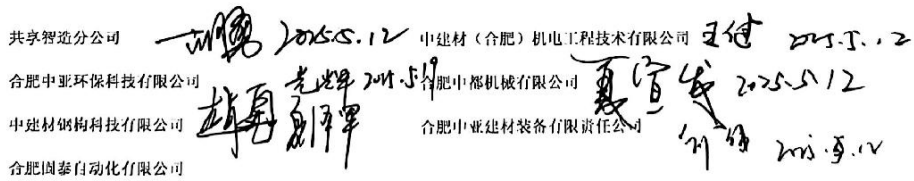 共享智造分公司 2025.5.12 中建材（合肥）机电工程技术有限公司 2025.5.12
合肥中亚环保科技有限公司 2025.5.19 合肥中都机械有限公司 夏宣成 2025.5.12
中建材钢构科技有限公司 合肥中亚建材装备有限责任公司 2025.5.12
合肥固泰自动化有限公司